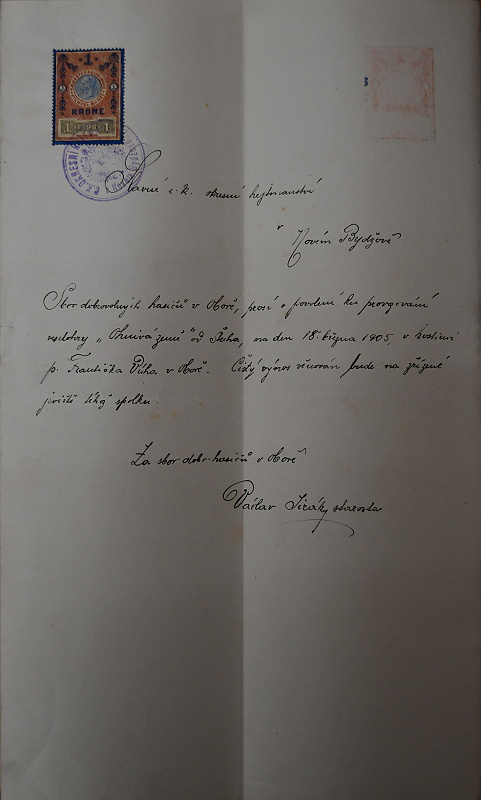 1
KRONE
1 1898 1
C.K. OKRESNÍ
Slavné c.k. okresní hejtmanství
v
Novém Bydžově
Sbor dobrovolných hasičů v Oboře, prosí o povolení ku provozování
veselohry „Ohnivá země" od Štolba, na den 18. března 1905, v hostinci
p. Františka Víha v Oboře. Čistý výnos věnován bude na zřízení
jeviště téhož spolku.
Za sbor dobr. hasičů v Oboře
Václav Jirák, starosta